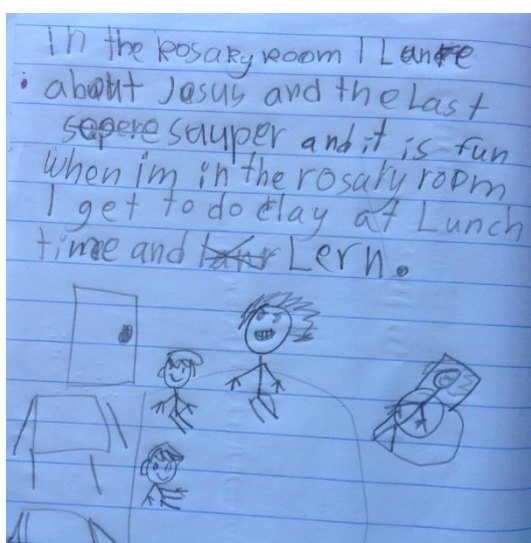 In the Rosary room I Lanre
about Jasus and the Last
sauper and it is fun
when im in the rosary room
I get to do clay at Lunch
time and Lern.